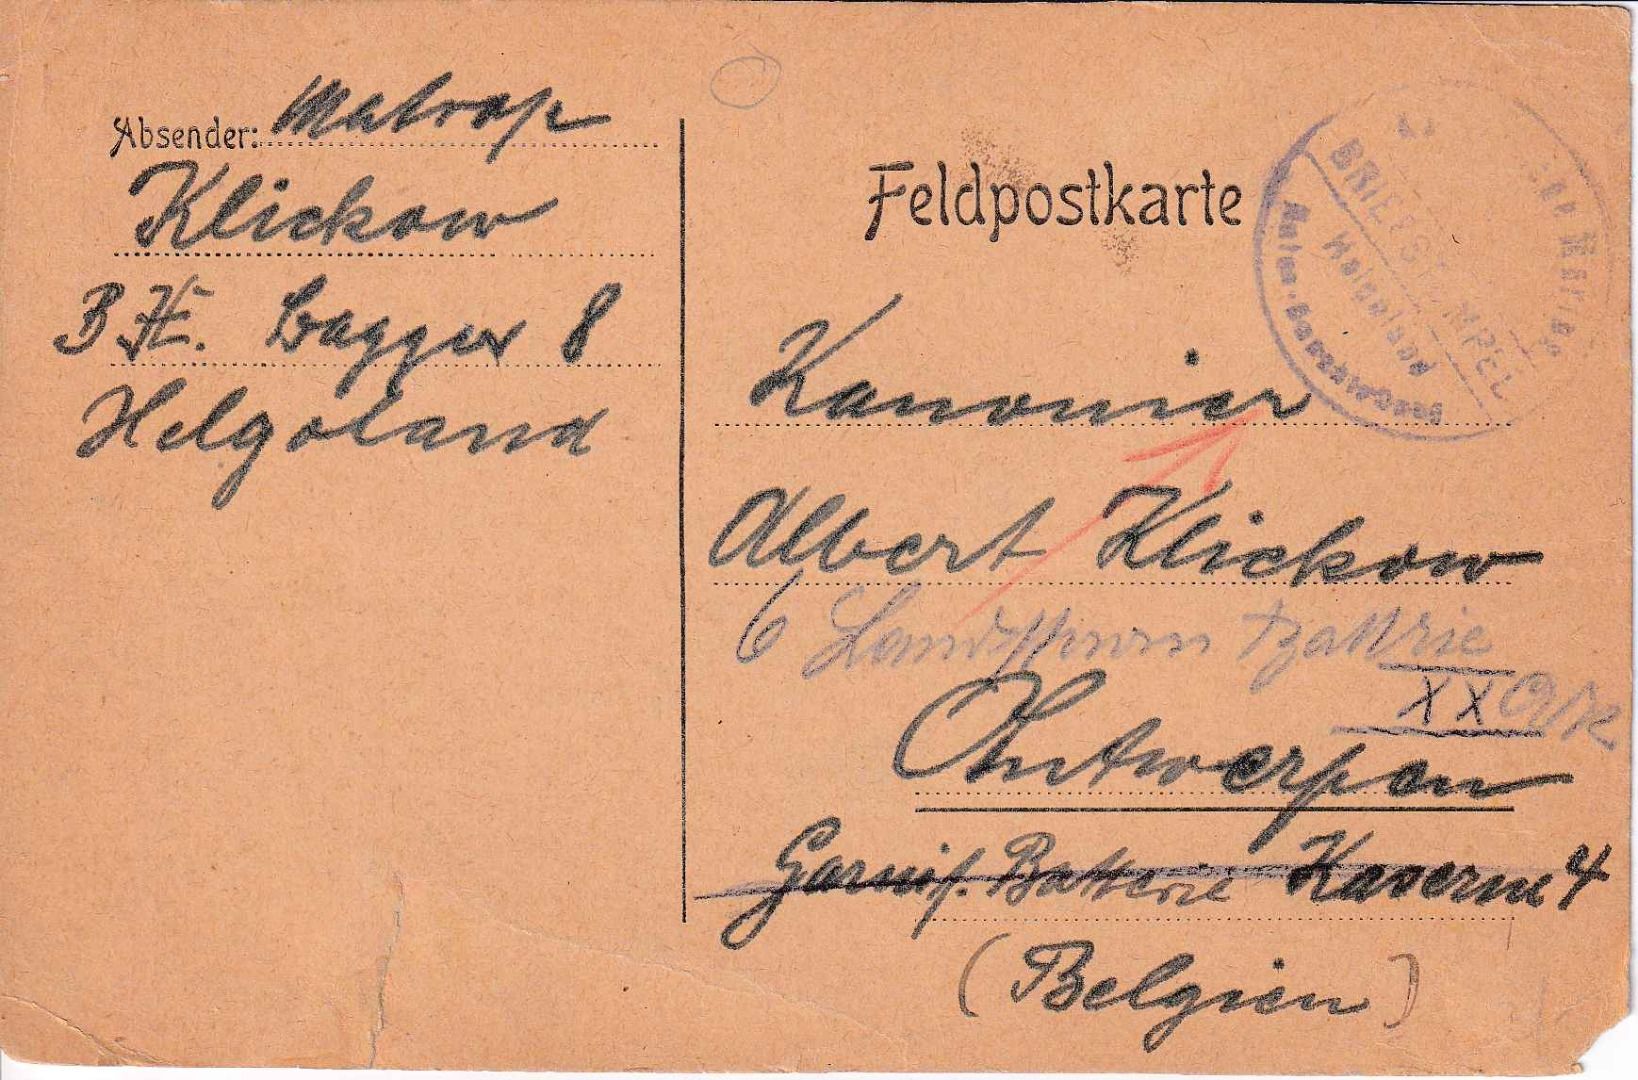 Absender: Matrose
Klickow
B H. Bagger 8
Helgoland
Feldpostkarte
BRIEFSTEMPEL
Helgoland
Kanonier
Albert Klickow
6 Landsturm Battrie
XX
Antwerpen
Garnis. Batterie Kaserne 4
(Belgien)